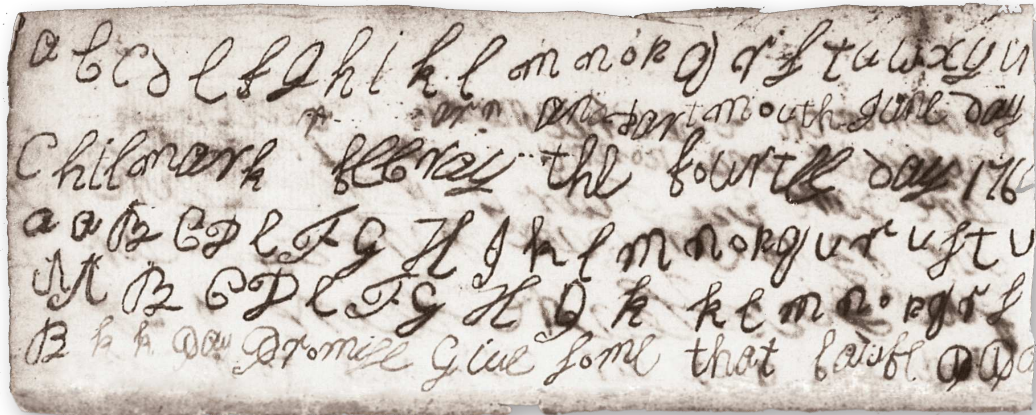 a b c d e f g h i k l m n o p q r s t u w x y
an dartmouth June day
Chilmark febray the fourth day 176
a a B C D E F G H I k l m n o p q u r u s t u
A A B C D E F G H I k k l m n o p q r s
B k k Day Promise Give some that